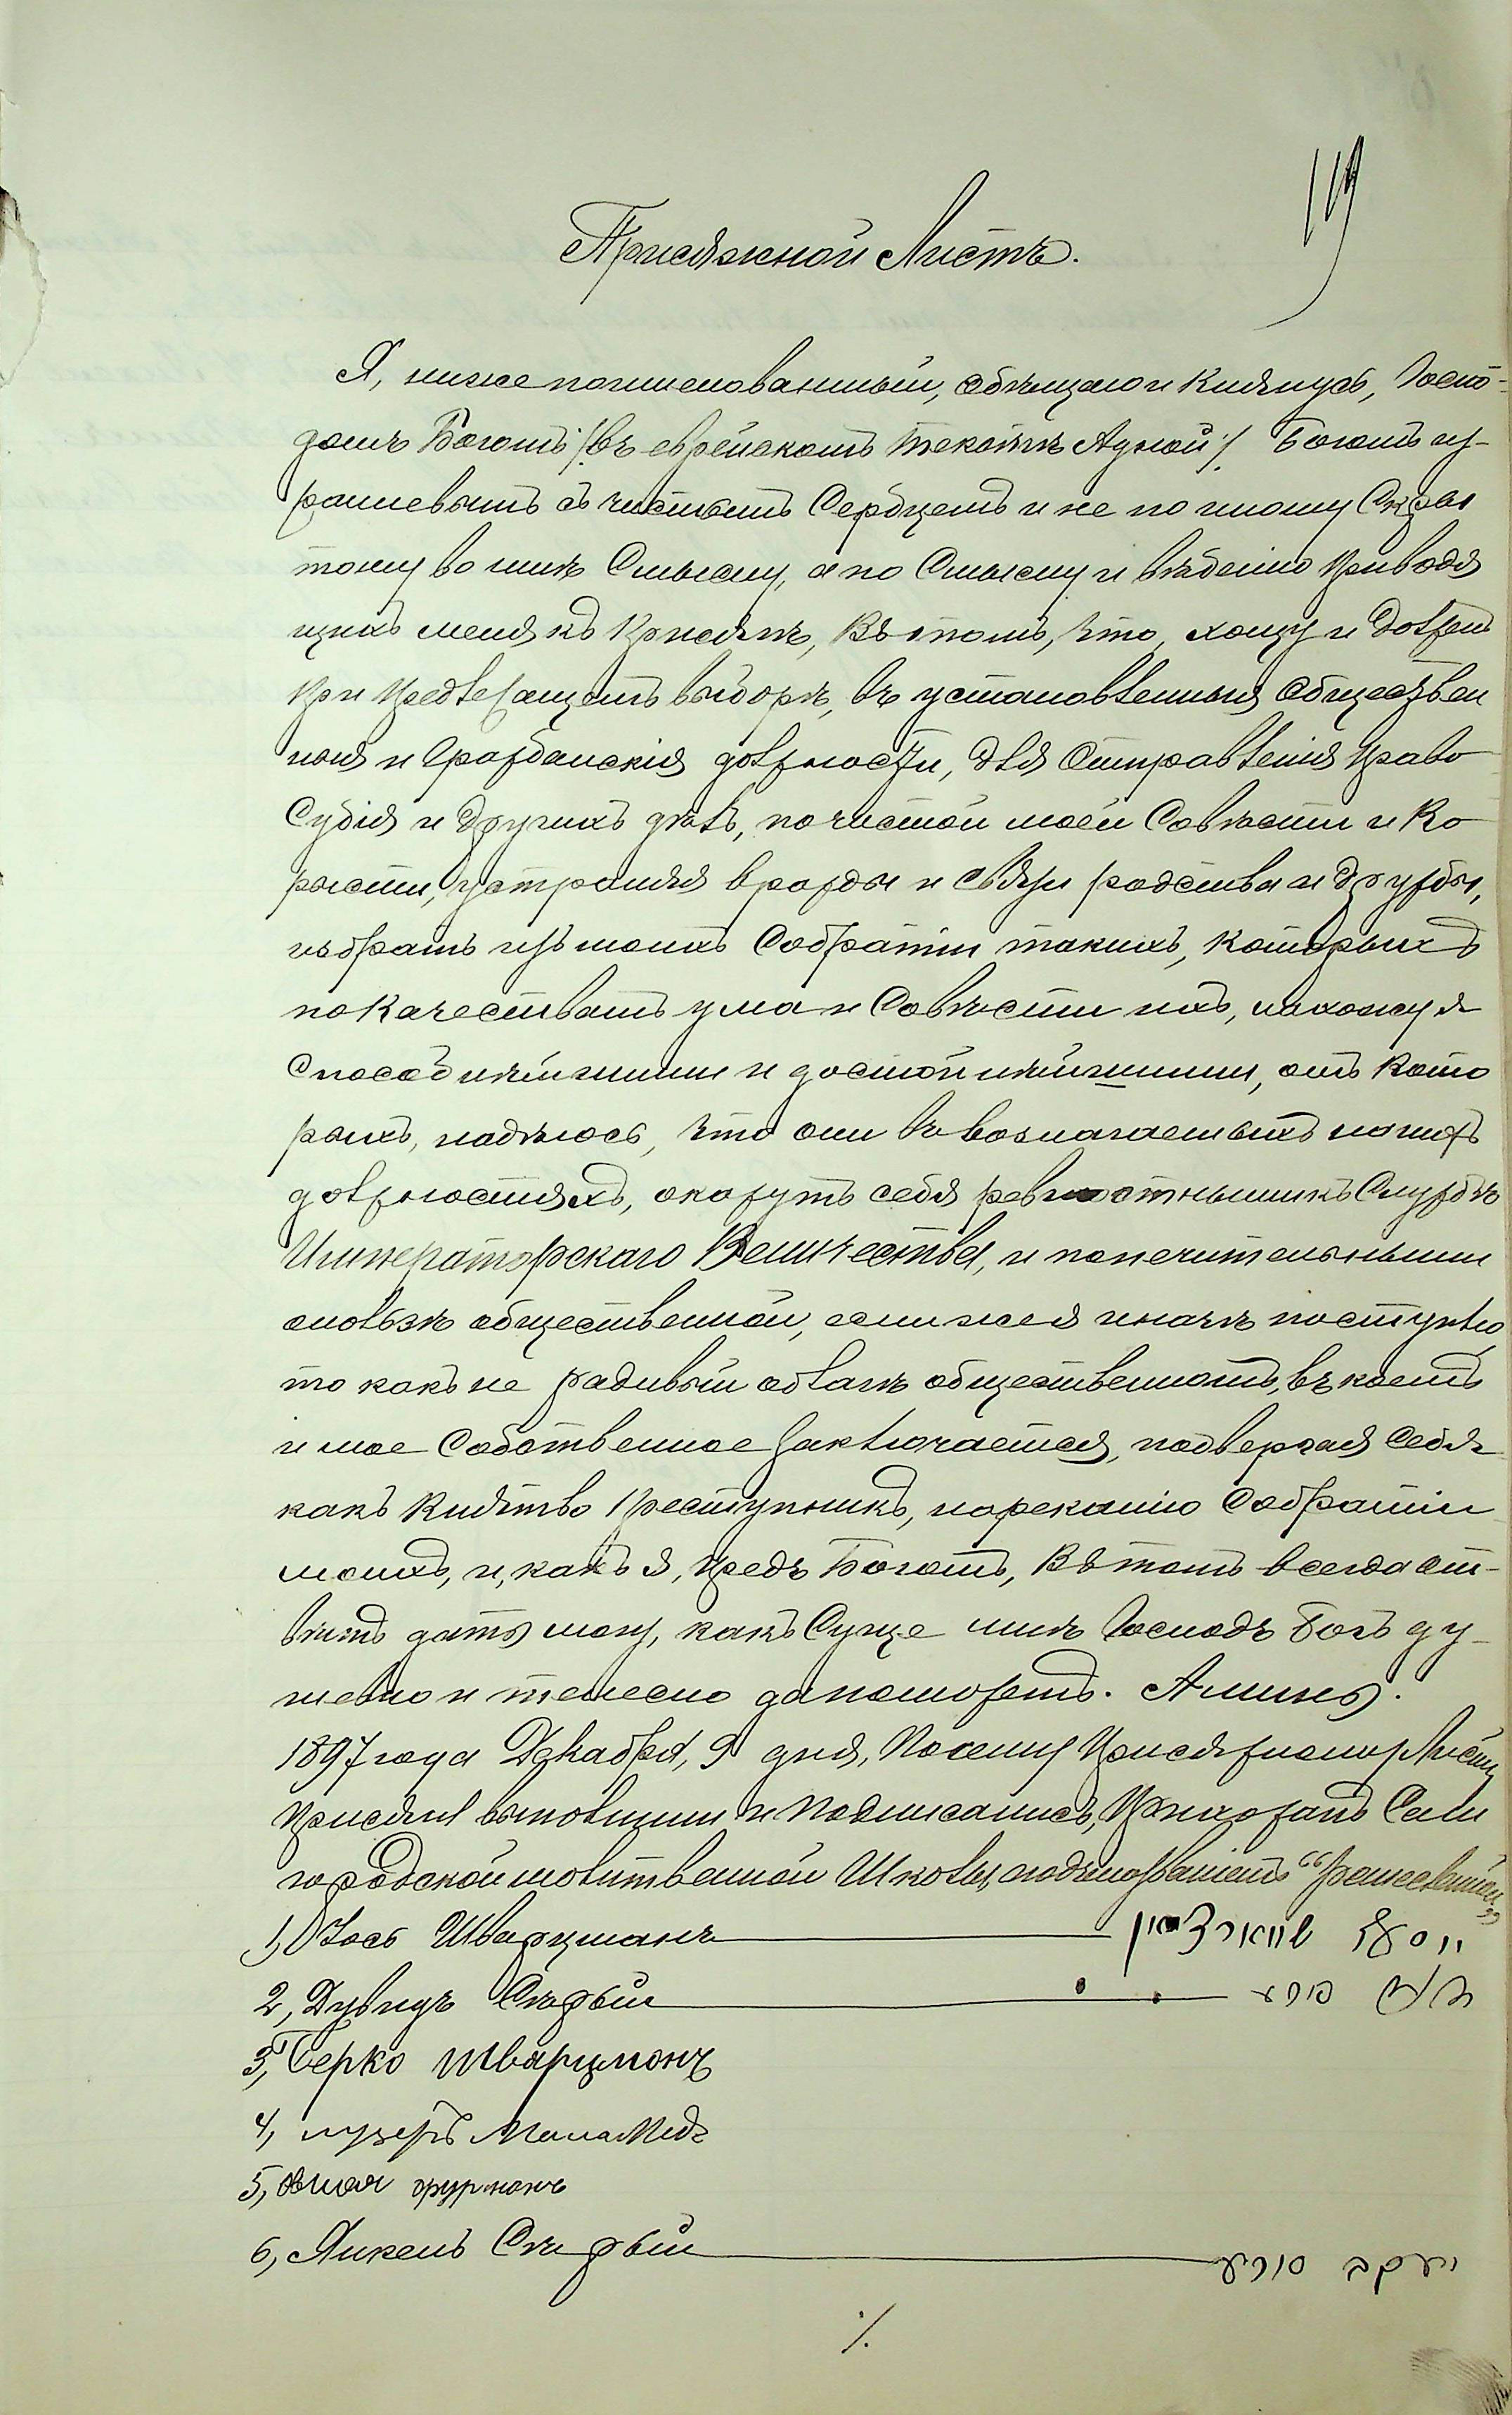 119
Присяжной Листъ.
Я, ниже поименованный, обѣщаю и клянусь, Госпо-
домъ Богомъ /:въ еврейскомъ текстѣ Адной:/ Богомъ из-
раилевымъ съ чистымъ Сердцемъ и не по иному Скры
тому во мнѣ Смыслу, а по Смыслу и вѣдению приводя
щихъ меня къ присягѣ, въ томъ, что, хощу и долженъ
при предлежащемъ выборѣ, въ установленныя обществен
ныя и Гражданскія должности, для отправленія право
Судія и другихъ дѣлъ, по чистой моей Совѣсти и ко
рысти, устраняя вражды и связи родства и дружбы,
избрать изъ моихъ Собратіи такихъ, которыхъ
по качествамъ ума и Совѣсти ихъ, нахожу я
Способнѣйшими и достойнѣйшими, отъ кото
рыхъ, надѣюсь, что они въ возлагаемыхъ на нихъ
должностяхъ, окажутъ себя ревностными къ Службѣ
Императорскаго Величества, и попечительными
о пользѣ общественной, если же я иначе поступлю
то какъ не радивый о благѣ общественномъ, въ коемъ
и мое Собственное заключается, подвергая Себя
какъ клятво преступникъ, нареканію Собратіи
моихъ, и, какъ я, предъ Богомъ, въ томъ всегда от-
вѣтъ дать могу, какъ Суще мнѣ Господь Богъ ду-
шевно и телесно да поможетъ. Аминь.
1897 года Декабря, 9 дня, По сему Присяжному Листу
присягу выполнили и подписались, Прихожанъ Сали
городской молитвенной Школы, подъ названіемъ
1, Иось Шварцманъ יוסף שווארצמאן
2, Дувидъ Сырый סירע
3, Берко Шварцмонъ
4, лузеръ Маламедъ
5,
6, Янкель Сырый יעקב סירע